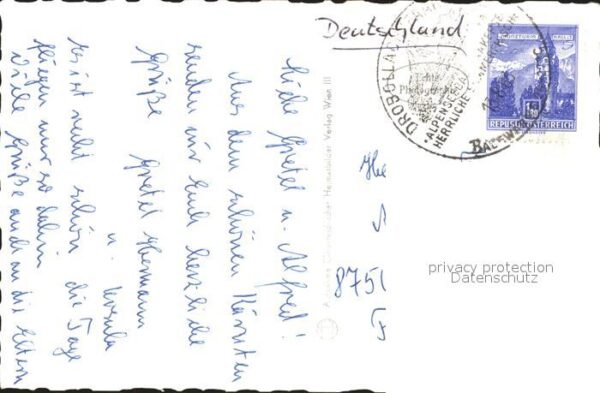 Deutschland
DROBOLLACH
ALPENS
HERRLICHE
BADEWE
Echte
Photographie
1.50
REPUBLIK ÖSTERREICH
Liebe Gretel u. Alfred!
Aus dem schönen Kärnten
senden wir Euch herzliche
Grüße Gretel Hermann
u. Ursula
es ist recht schön die Tage
fliegen nur so dahin
Viele Grüße auch an die Eltern
Verlag Wien III
8751
privacy protection
Datenschutz